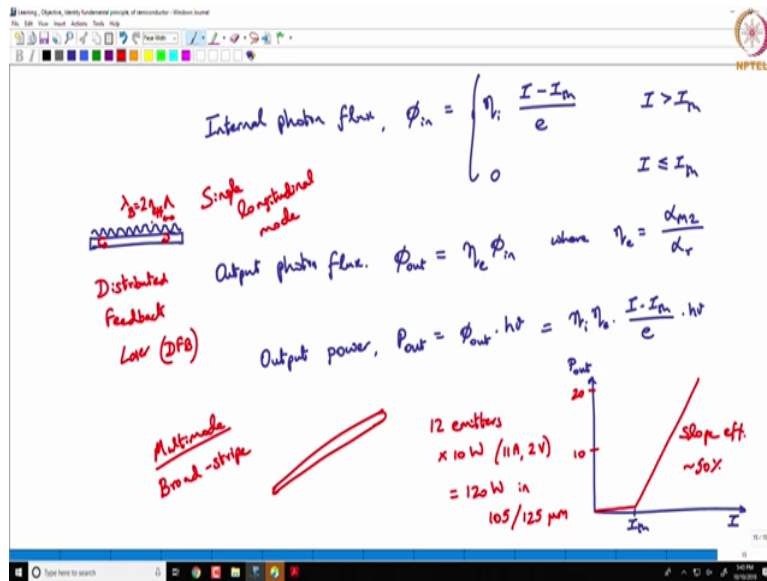 Learning_, Objective, Identify fundamental principle, of semiconductor - Windows Journal
File Edit View Insert Actions Tools Help
Page Width
B I
NPTEL
Internal photon flux, ϕ_in = { η_i (I - I_th)/e    I > I_th
0    I ≤ I_th
λ_B = 2 η_eff Λ
Single
longitudinal
mode
Distributed
Feedback
Laser (DFB)
Output photon flux. ϕ_out = η_e ϕ_in where η_e = α_M2/α_r
Output power, P_out = ϕ_out · hν = η_i η_e · (I - I_th)/e · hν
Multimode
Broad-stripe
12 emitters
× 10 W (11A, 2V)
= 120 W in
105/125 μm
P_out
20
10
Slope eff.
~50%
I_th
I
15/15
15
Type here to search
5:40 PM
10/10/2018